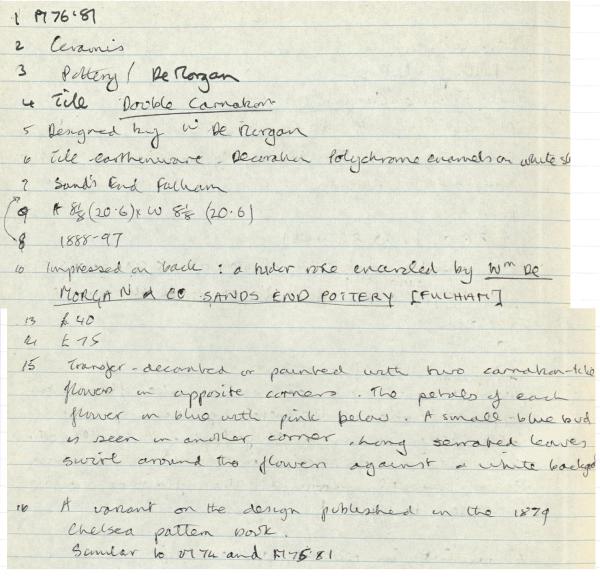 1 M76'81
2 Ceramics
3 Pottery / De Morgan
4 Tile Double Carnation
5 Designed by Wm De Morgan
6 Tile - earthenware. Decoration Polychrome enamels on white
7 Sand's End Fulham
9 H 8⅛ (20.6) x W 8⅛ (20.6)
8 1888-97
10 Impressed on back : a tudor rose encircled by Wm DE
MORGAN & CO SANDS END POTTERY [FULHAM]
13 £40
£75
15 Transfer-decorated or painted with two carnation-like
flowers in opposite corners. The petals of each
flower in blue with pink below. A small blue bud
is seen in another corner. Long serrated leaves
swirl around the flowers against a white backgd
16 A variant on the design published in the 1879
Chelsea pattern book.
Similar to M74 and M75'81